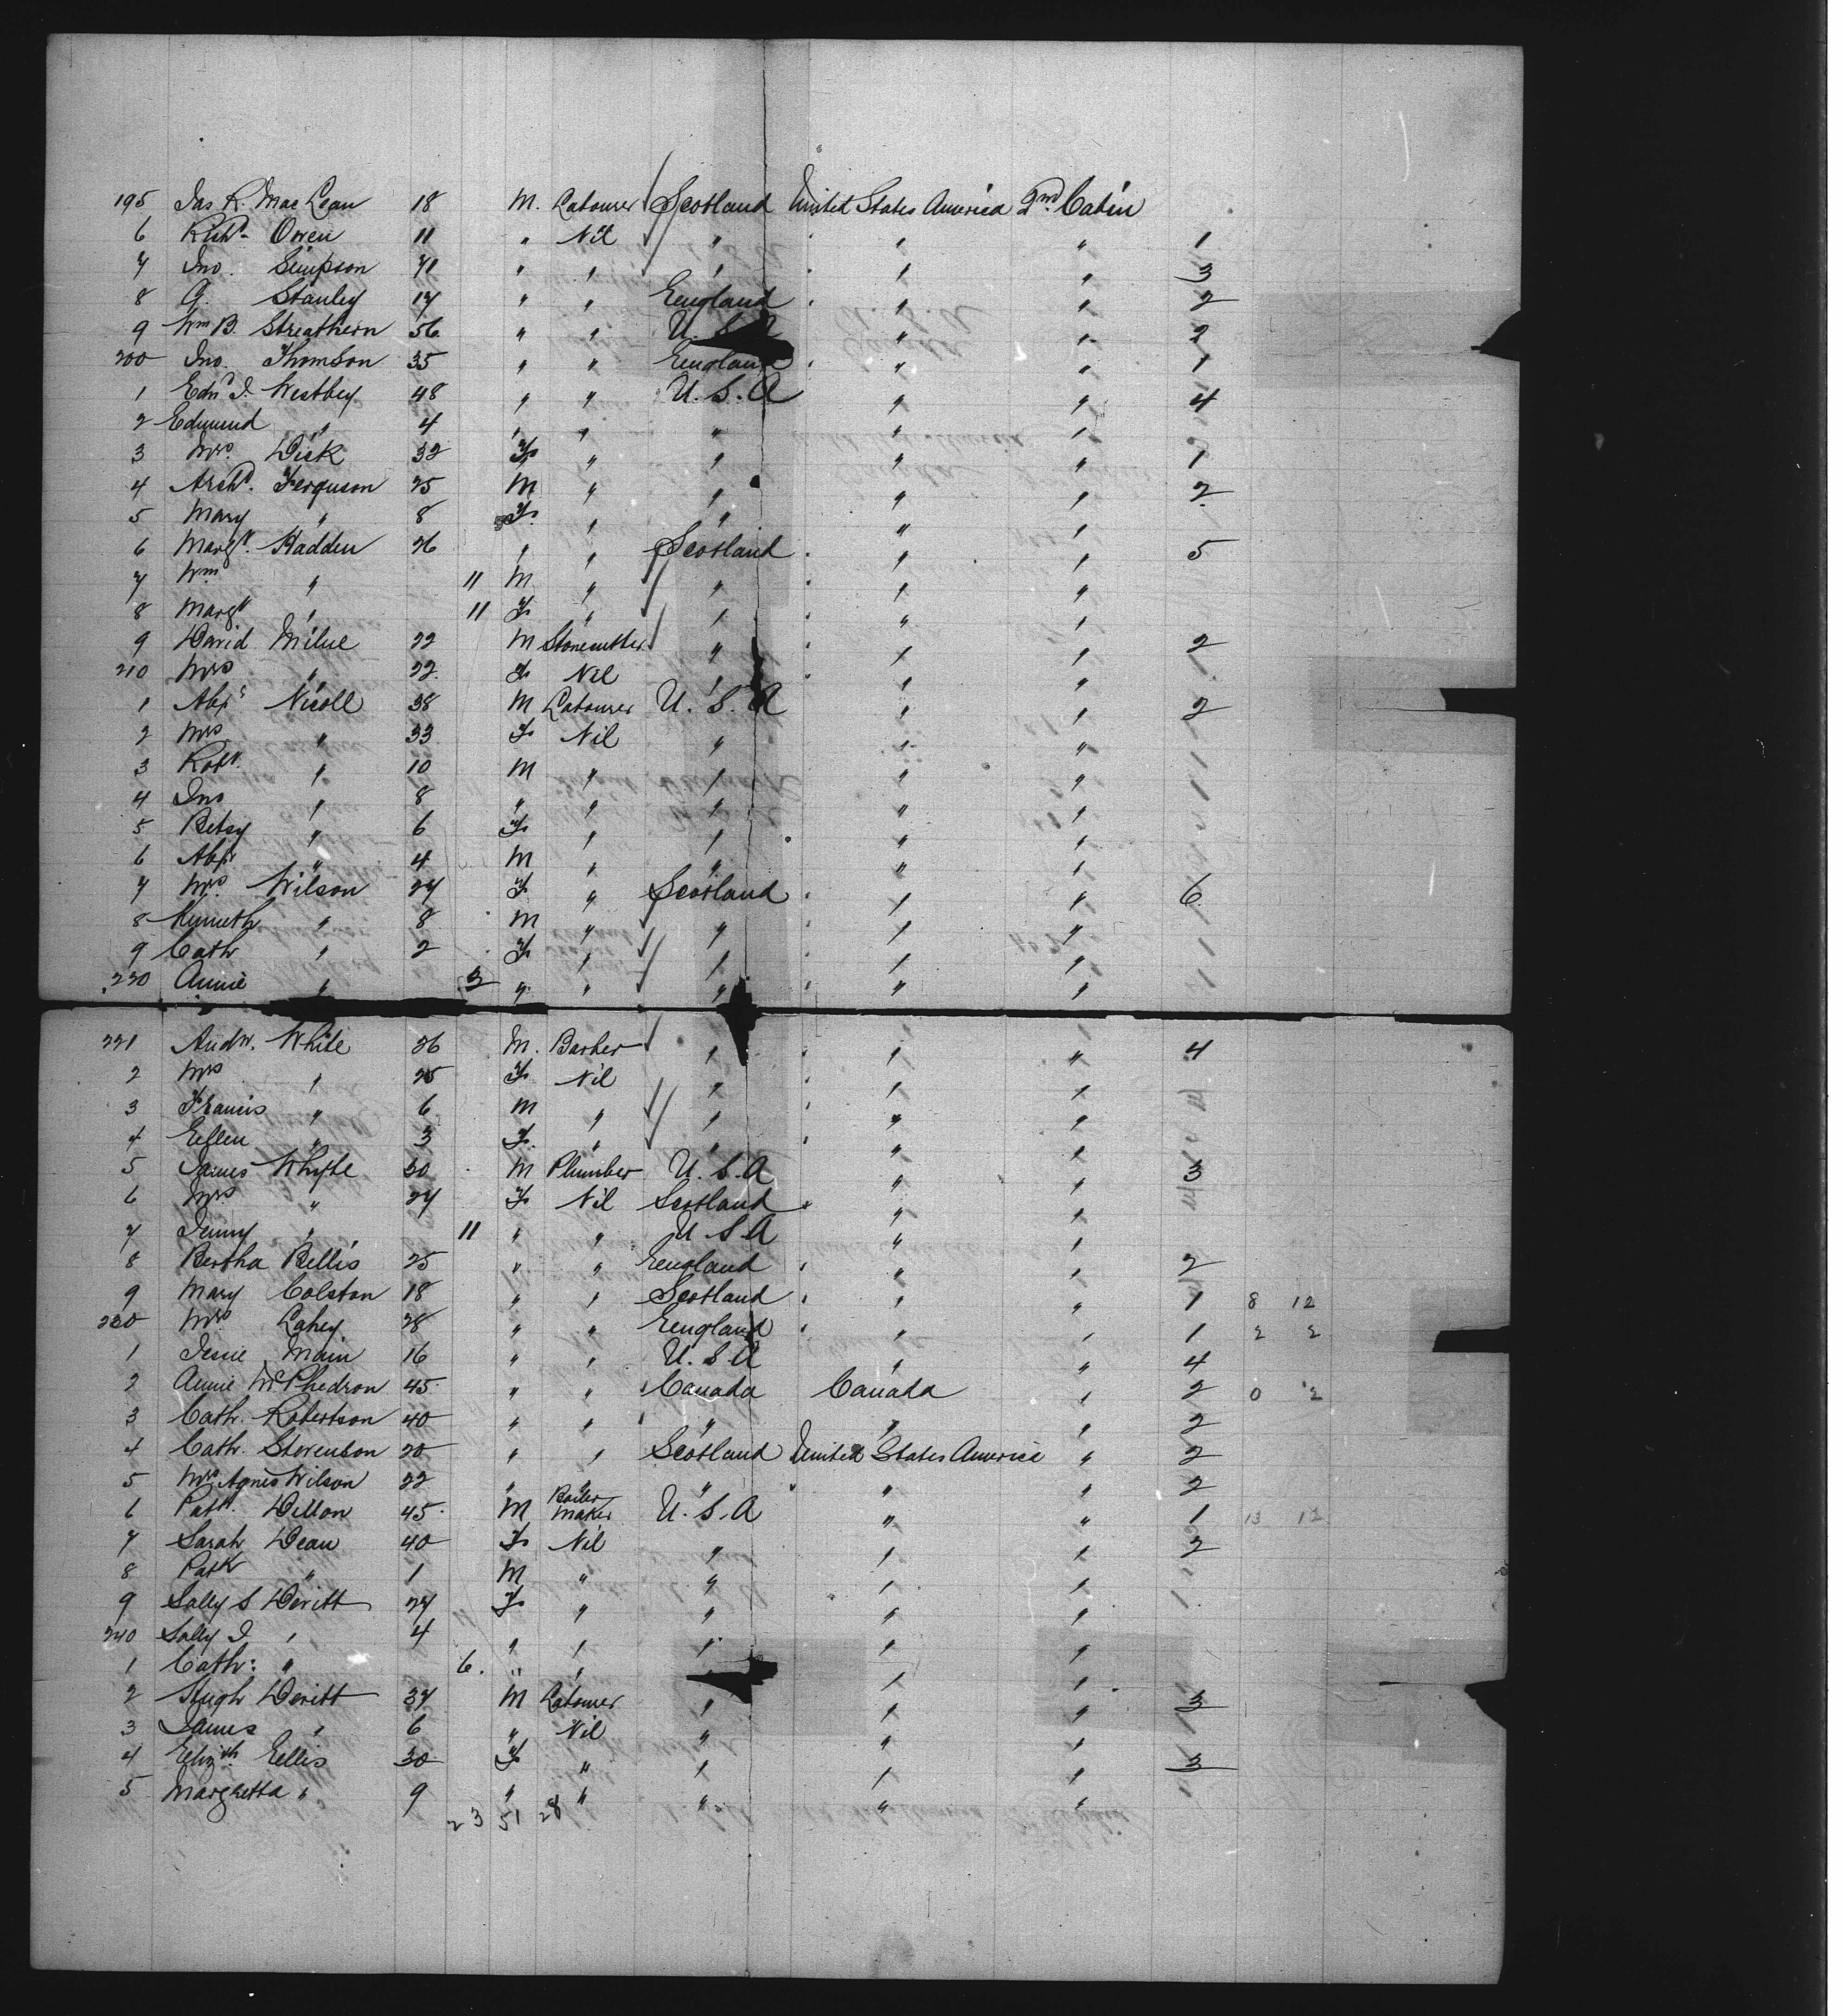 195 Jas R. MacLean 18 M. Labourer Scotland United States America 2nd Cabin
6 Richd. Owen 11 " Nil " " " 1
7 Jno. Simpson 71 " " " " " 3
8 G. Stanley 17 " " England " " 2
9 Wm B. Streathern 56 " " U.S.A " " 2
200 Jno. Thomson 35 " " England " " 1
1 Edwd J. Westbey 48 " " U.S.A " " 4
2 Edmund " 4 " " " " "
3 Mrs. Dick 32 F " " " " 1
4 Archd. Ferguson 25 M " " " " 2
5 Mary " 8 F. " " " "
6 Margt. Hadden 26 " " Scotland " " 5
7 Wm " 11 M " " " "
8 Margt " 11 F " " " "
9 David Milne 22 M Stonecutter " " " 2
210 Mrs " 22 F Nil " " "
1 Alexr Nicoll 38 M Labourer U.S.A " " 2
2 Mrs " 33 F Nil " " "
3 Robt. " 10 M " " " "
4 Jno " 8 " " " " "
5 Betsy " 6 F " " " "
6 Alexr " 4 M " " " "
7 Mrs Wilson 27 F. " Scotland " " 6
8 Kenneth " 8 M " " " "
9 Cath " 2 F " " " "
220 Annie " 3 " " " " "
221 Andw. White 26 M. Barber " " " 4
2 Mrs " 25 F Nil " " "
3 Francis " 6 M " " " "
4 Ellen " 3 F. " " " "
5 James Whyte 30 M Plumber U.S.A " " 3
6 Mrs " 27 F Nil Scotland " "
7 Jenny " 11 " " U.S.A " "
8 Bertha Bellis 25 " " England " " 2
9 Mary Colston 18 " " Scotland " " 1 8 12
230 Mrs Lahey 28 " " England " " 1 2 2
1 Jessie Main 16 " " U.S.A " " 4
2 Annie McPhedron 45 " " Canada Canada " 2 0 2
3 Cath. Robertson 40 " " " " " 2
4 Cath. Stevenson 20 " " Scotland United States America " 2
5 Mrs Agnes Wilson 22 " " " " " 2
6 Patk. Dillon 45 M Boiler maker U.S.A " " 1 13 12
7 Sarah Dean 40 F Nil " " " 2
8 Patk " 1 M " " " "
9 Sally S Devitt 27 F " " " "
240 Sally J " 4 " " " " "
1 Cath: " 6. " " " "
2 Hugh Devitt 37 M Labourer " " " 3
3 James " 6 " Nil " " "
4 Elizth. Ellis 30 F " " " " 3
5 Margretta " 9 " " " " "
23 51 28